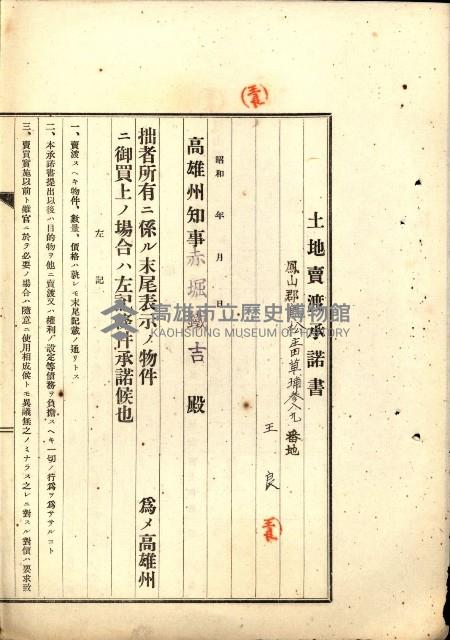 土地賣渡承諾書
鳳山郡 草埔參八九番地
王良
王良
王良
昭和 年 月 日
高雄州知事赤堀鐵吉 殿
爲メ高雄州
拙者所有ニ係ル末尾表示ノ物件
ニ御買上ノ場合ハ左記條件承諾候也
左記
一、賣渡スヘキ物件、數量、價格ハ孰レモ末尾記載ノ通リトス
二、本承諾書提出以後ハ目的物ヲ他ニ賣渡又ハ權利ノ設定等債務ヲ負擔スヘキ一切ノ行爲ヲ爲ササルコト
三、賣買實施以前ト雖官ニ於テ必要ノ場合ハ隨意ニ使用相成候トモ異議無之ノミナラス之レニ對スル對價ハ要求致
高雄市立歷史博物館
KAOHSIUNG MUSEUM OF HISTORY